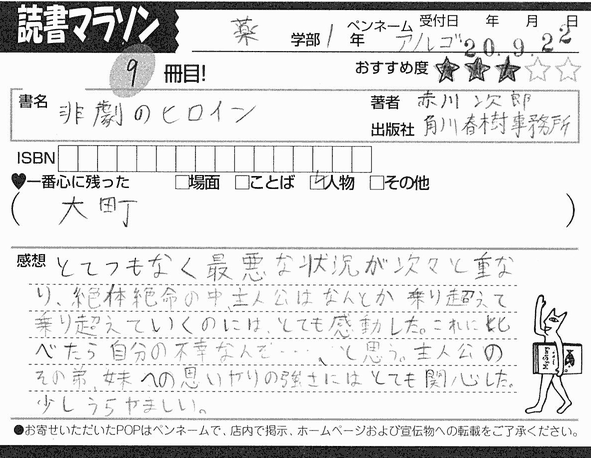 読書マラソン
薬 学部 1 年 ペンネーム アルゴ 受付日 年 月 日 20.9.22
9 冊目! おすすめ度 ★★★☆☆
書名 非劇のヒロイン 著者 赤川次郎
出版社 角川春樹事務所
ISBN
♥一番心に残った □場面 □ことば □人物 □その他
(大町)
感想 とてつもなく最悪な状況が次々と重な
り、絶体絶命の中主人公はなんとか乗り超えて
乗り超えていくのには、とても感動した。これに比
べたら自分の不幸なんて・・、と思う。主人公の
その弟、妹への思いやりの強さにはとても関心した。
少しうらやましい。
●お寄せいただいたPOPはペンネームで、店内で掲示、ホームページおよび宣伝物への転載をご了承ください。